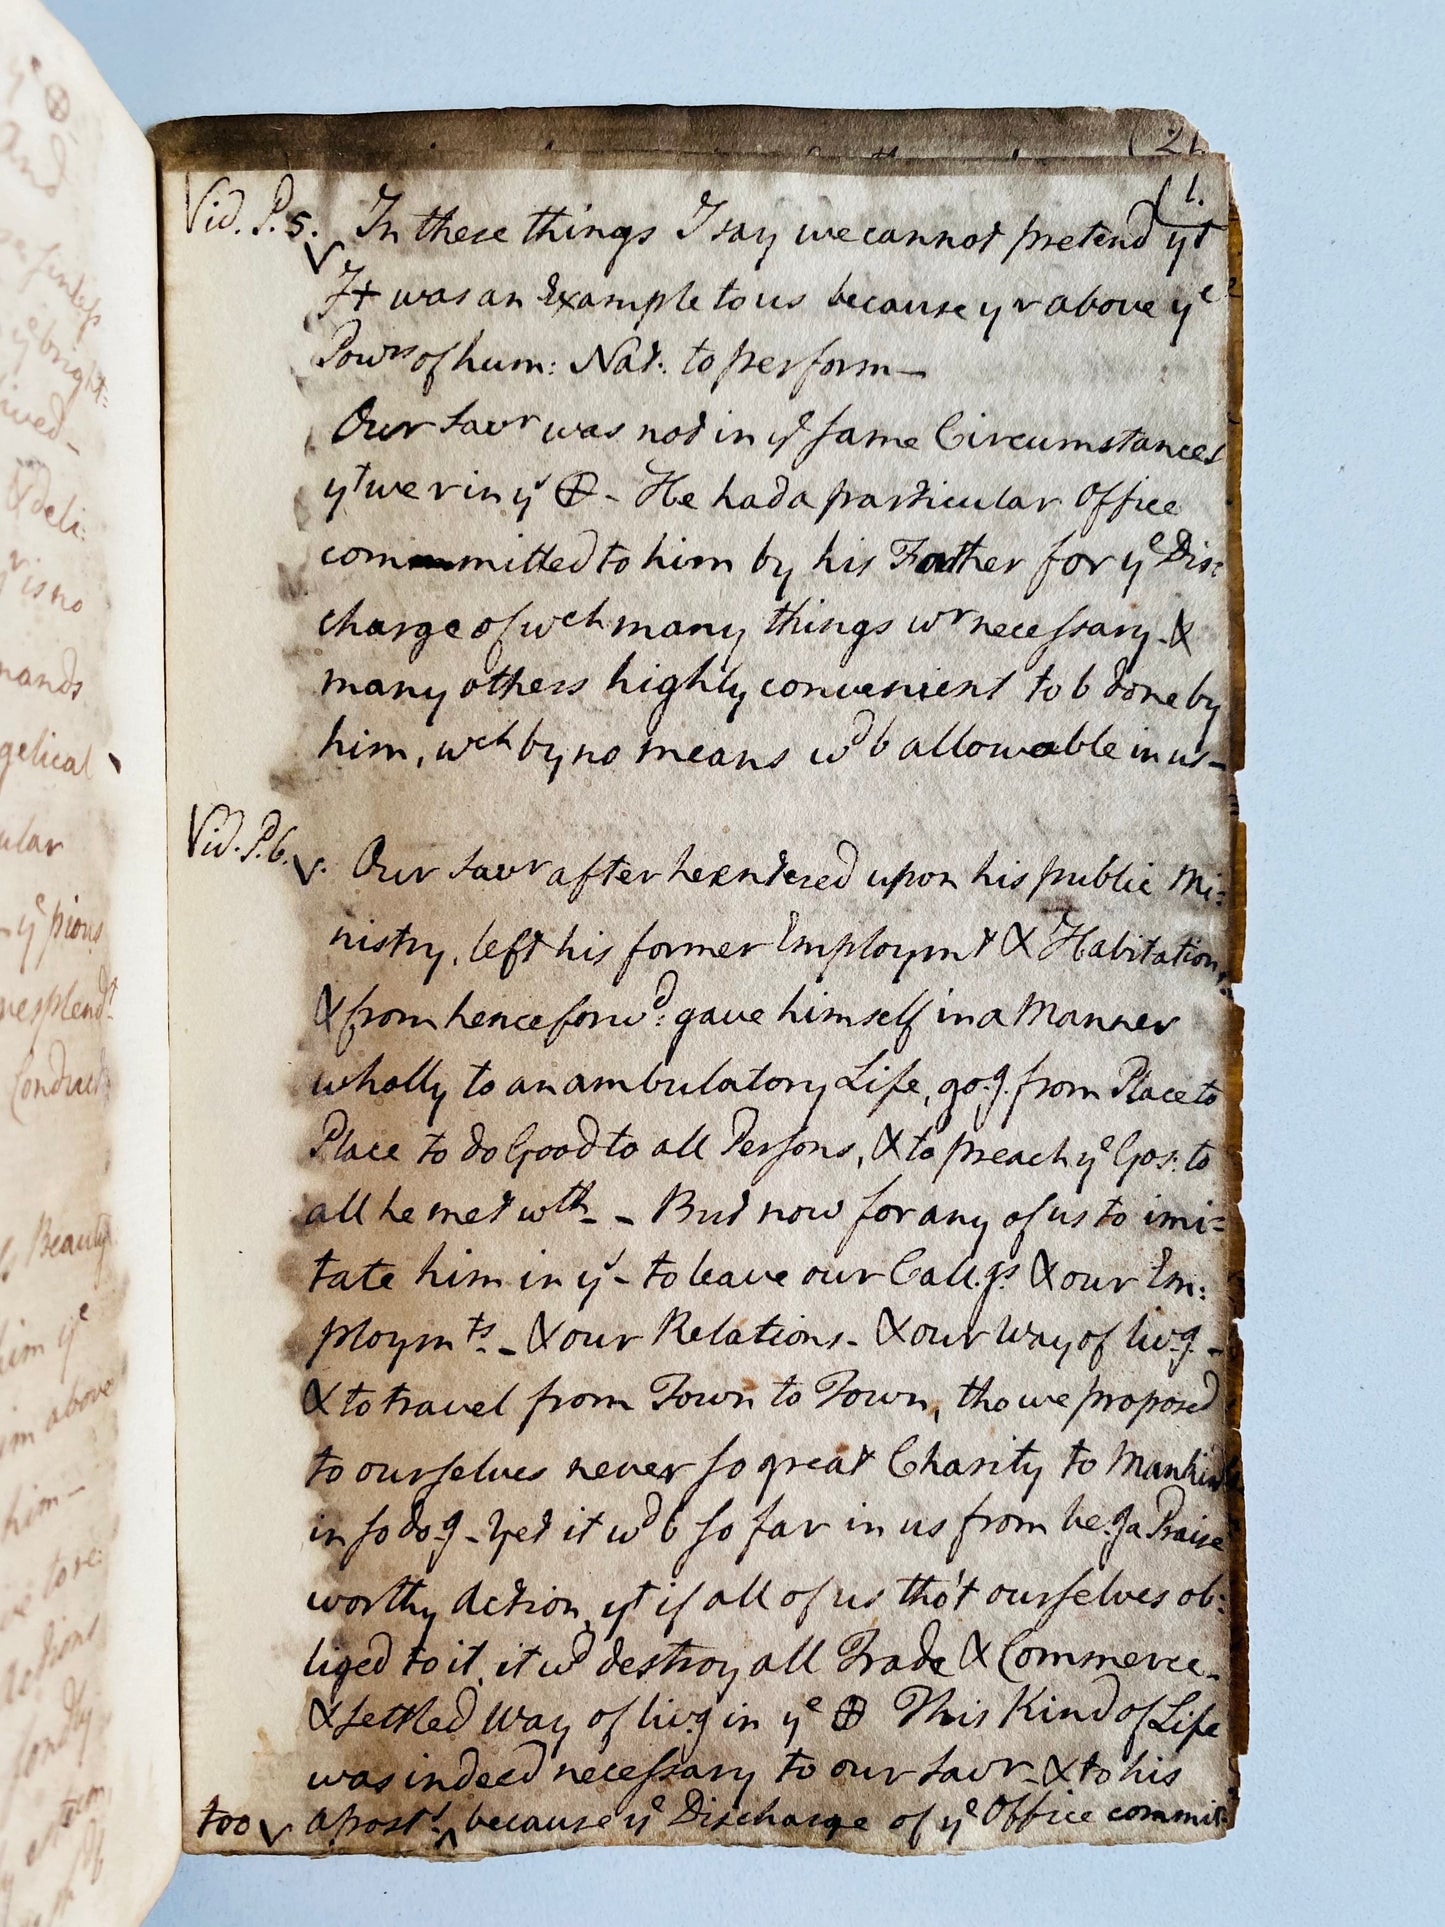 (21
(1.
Vid. P. 5. In these things I say we cannot pretend yt
It was an Example to us because y r above ye
Powrs of hum: Nat: to perform —
Our Savr was not in ye same Circumstances
yt we r in ys ⊕ - He had a particular Office
committed to him by his Father for ye Dis:
charge of wch many things wr necessary - &
many others highly convenient to b done by
him, wch by no means wd b allowable in us -
Vid. P. 6. Our Savr after he entered upon his public Mi:
nistry, left his former Employmt & Habitation,
& from henceforwd: gave himself in a Manner
wholly to an ambulatory Life, go.g. from Place to
Place to do Good to all Persons, & to preach ye Gos: to
all he met wth - - But now for any of us to imi:
tate him in ys - to leave our Call.gs & our Em:
ploymts. - & our Relations - & our Way of liv.g -
& to travel from Town to Town, tho we proposed
to ourselves never so great Charity to Mankind
in so do.g - Yet it wd b so far in us from be.g a Praise
worthy Action, yt if all of us tho't ourselves ob:
liged to it, it wd destroy all Trade & Commerce -
& settled Way of liv.g in ye ⊕ This Kind of Life
was indeed necessary to our Savr - & to his
too apostls. because ye Discharge of ye Office commit:
ye ⊗
and
bright:
ived -
& deli:
r is no
mands
gelical
ular
- ye pious
Conduct
Beauty
him ye
m above
him -
Actions